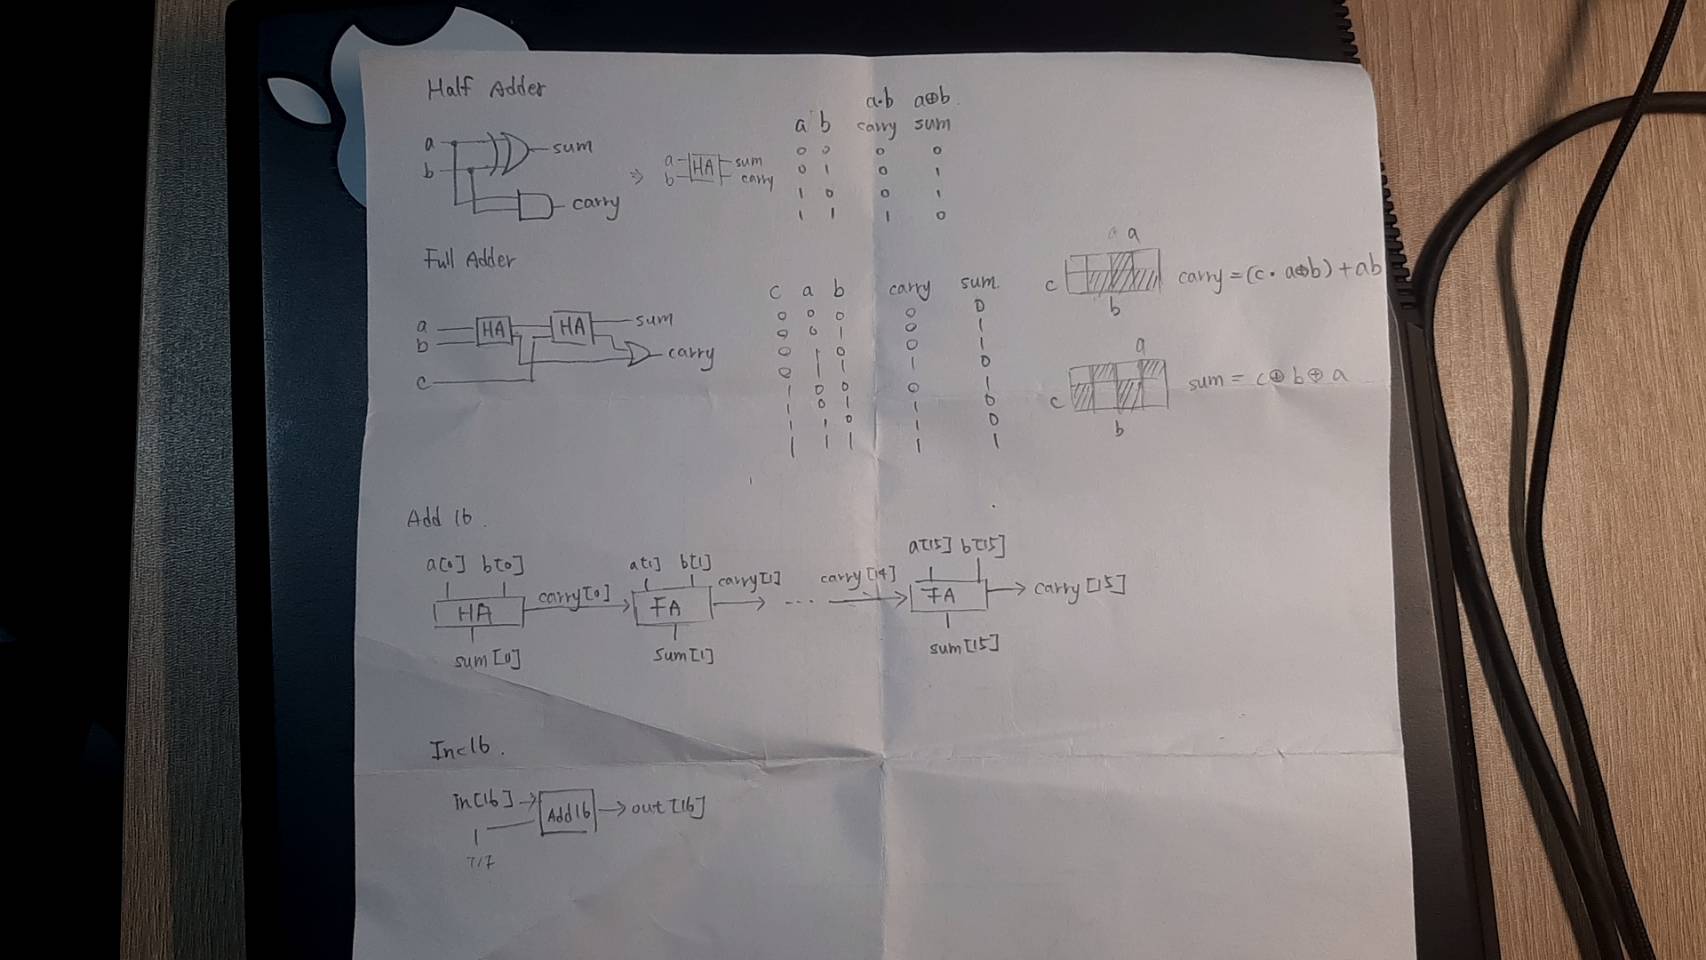 Half Adder
a
b
sum
carry
⇒
a
b
HA
sum
carry
a·b a⊕b
a b carry sum
0 0 0 0
0 1 0 1
1 0 0 1
1 1 1 0
Full Adder
a
b
c
HA
HA
sum
carry
c a b carry sum
0 0 0 0 0
0 0 1 0 1
0 1 0 0 1
0 1 1 1 0
1 0 0 0 1
1 0 1 1 0
1 1 0 1 0
1 1 1 1 1
a
c
b
carry = (c · a⊕b) + ab
a
c
b
sum = c⊕b⊕a
Add 16.
a[0] b[0]
HA
sum[0]
carry[0]
a[1] b[1]
FA
sum[1]
carry[1]
...
carry[14]
a[15] b[15]
FA
sum[15]
carry[15]
Inc16.
in[16] → Add16 → out[16]
1